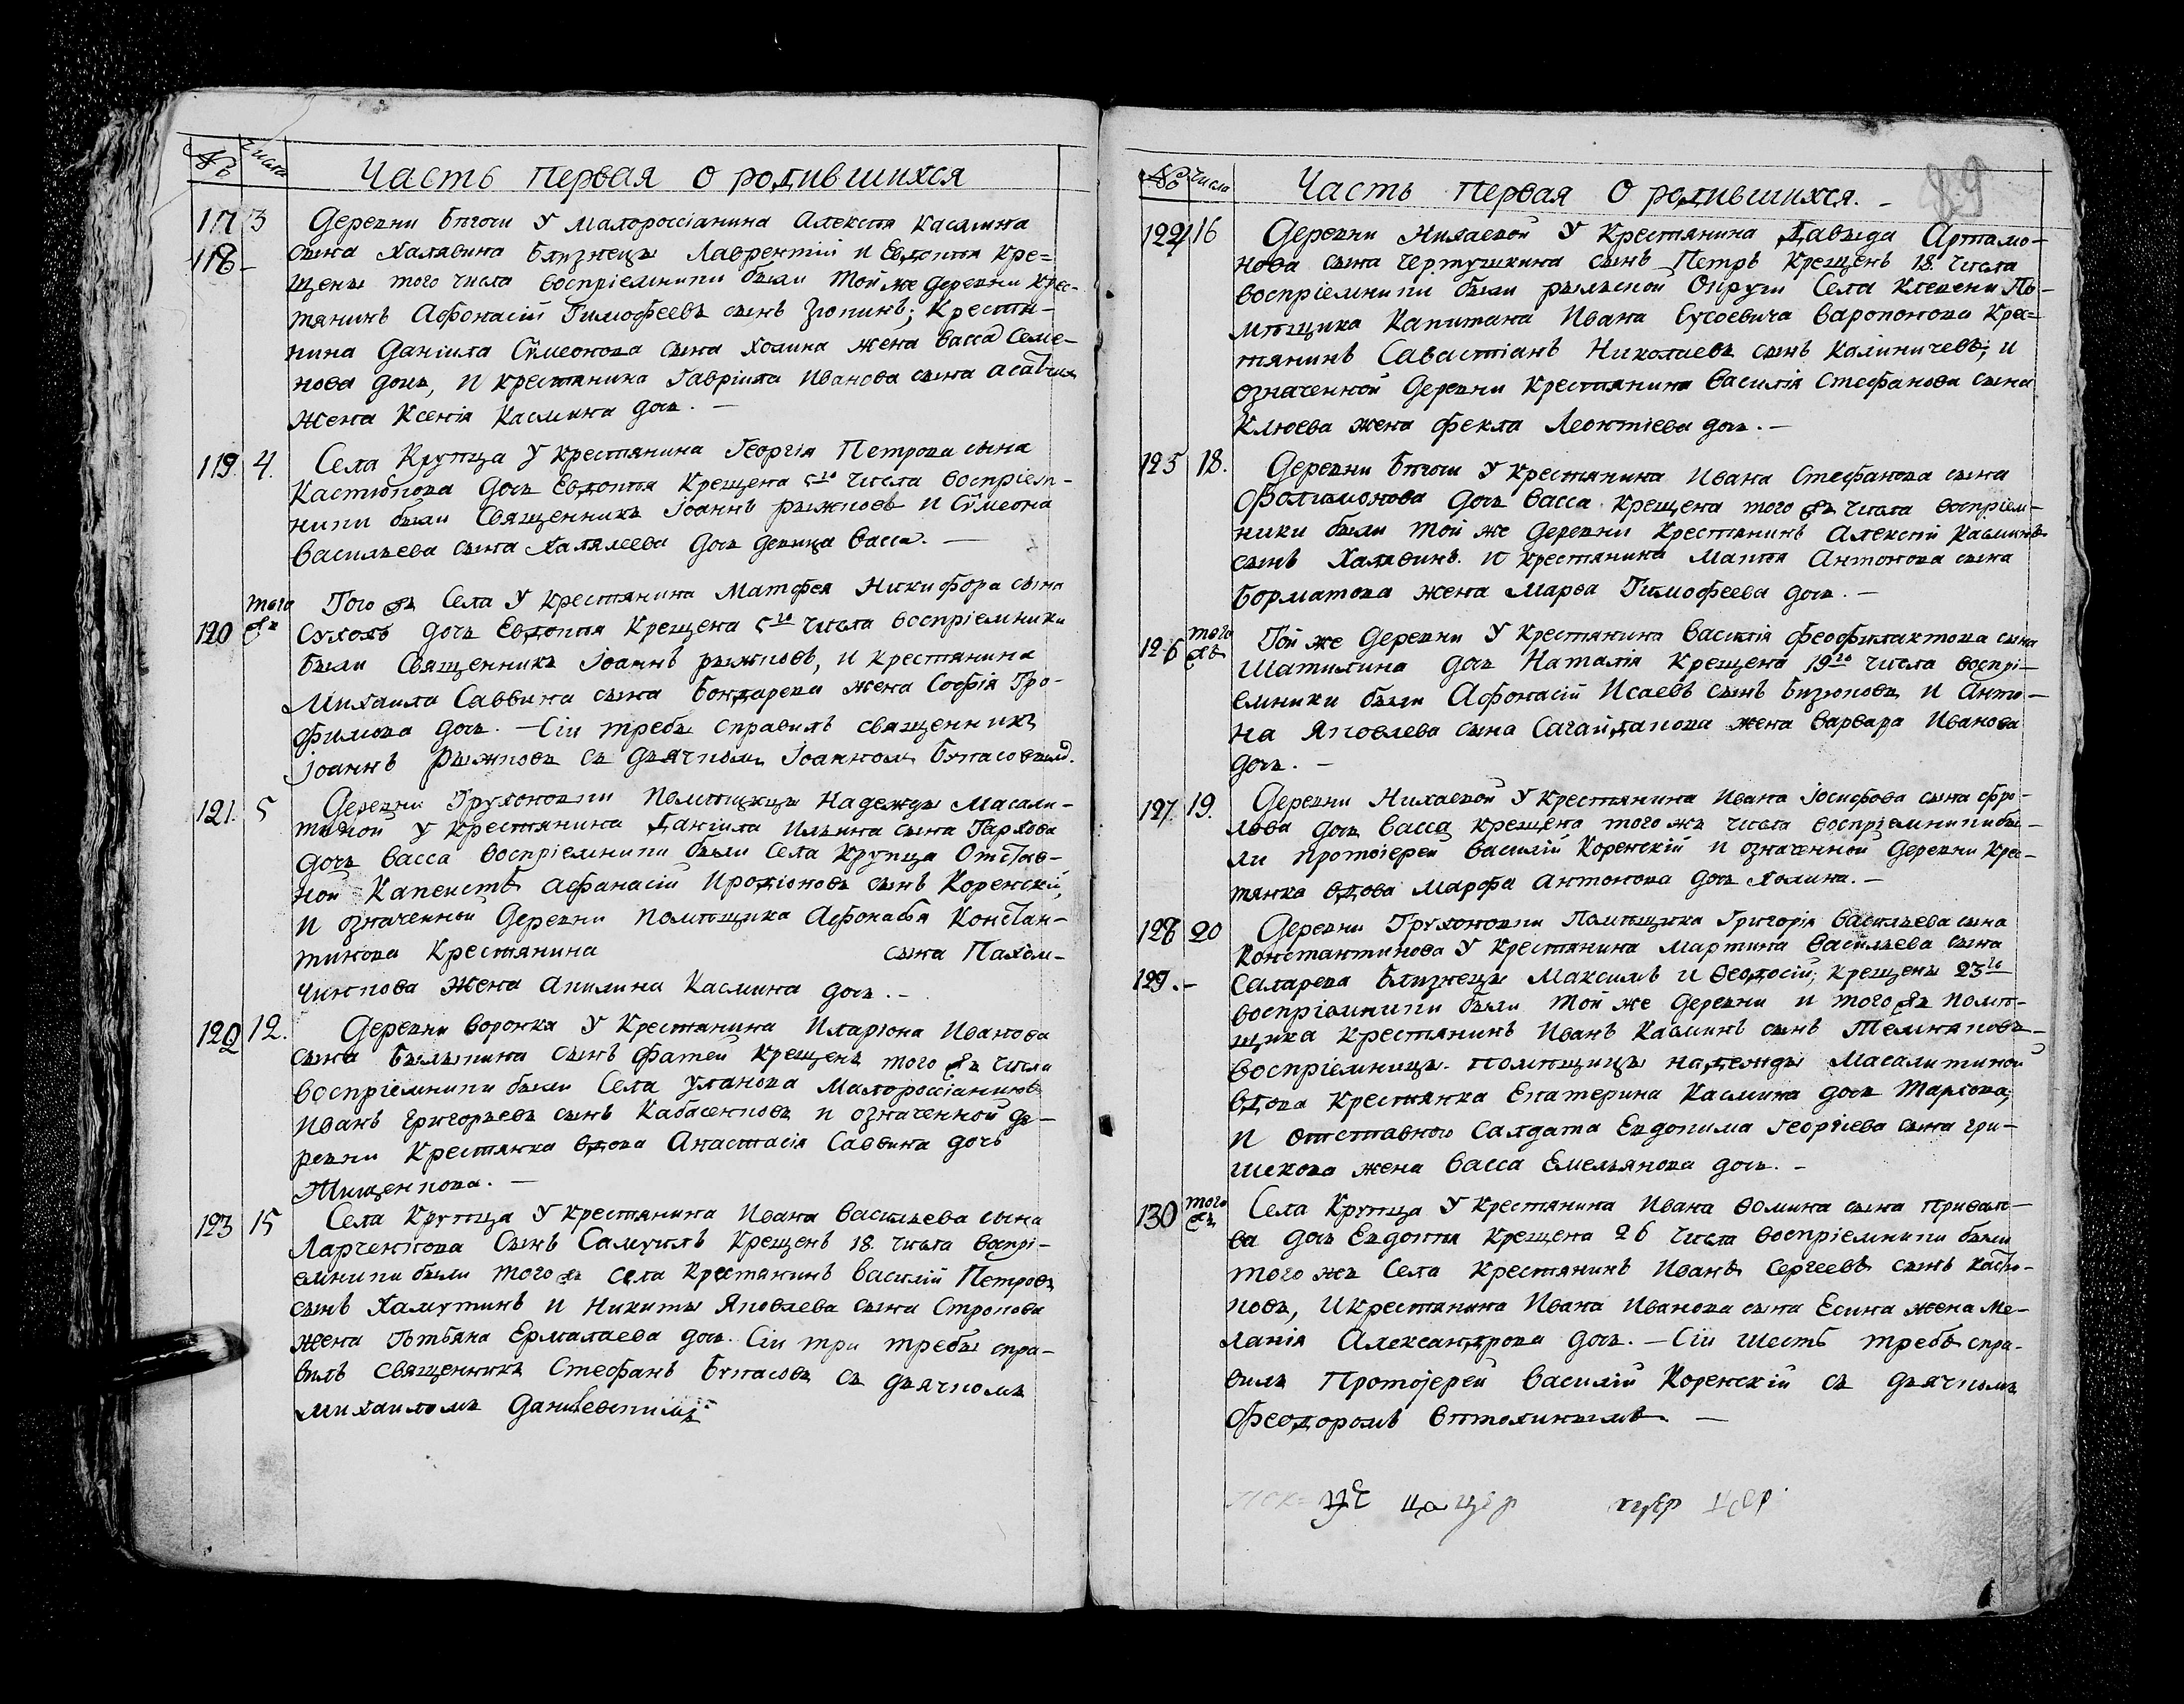 № Числа Часть первая о родившихся
117 3 Деревни Бегоши У малороссіанина Алексея Касмина
118 - сына Халявина близнецы Лаврентій и Евдотея Кре=
щены того числа восприемники были той же деревни Крес-
тянинъ Афонасій Тимофеевъ сынъ Зюкинъ; Крестя-
нина Даніила Сѵмеонова сына Холина жена Васса Семе-
нова дочь, и крестянина Гавріила Иванова сына
жена Ксенія Касмина дочь. —
119. 4. Села Крупца У крестянина Георгія Петрова сына
Кастюкова дочь Евдотея Крещена 5го числа восприем-
ники были Священникъ Іоаннъ рыжковъ и Сѵмеона
Васильева сына Халялеева дочь девица Васса. —
того Того жъ Села У крестянина Матфея Никифора сына
120 жъ Сухова дочь Евдотея Крещена 5го числа восприемники
были Священникъ Іоаннъ рыжковъ, и крестянина
Михаила Саввина сына Бондарева жена Софія Тро-
фимова дочь. — Сіи требы справилъ священникъ
Іоаннъ Рыжковъ съ дьячкомъ Іоанномъ Булгасовымъ.
121. 5 Деревни Груховки помещицы Надежды Масали-
тиной У крестянина Даніила Ильина сына Тархова
дочь Васса восприемники были Села Крупца Отстав-
ной Капеистъ Афанасій Иродіоновъ сынъ Коренскій,
и означенной Деревни помещика Афонасія Констан-
тинова Крестянина сына Пахом-
чинкова жена Акилина Касмина дочь. -
122 12. Деревни Воронка У крестянина Иларіона Иванова
сына Былыкина сынъ Фатей Крещенъ того жъ числа
восприемники были Села Уланова Малороссіанинъ
Иванъ Григорьевъ сынъ Кабасенковъ и означенной де-
ревни Крестянка вдова Анастасія Саввина дочь
Тищенкова. —
123 15 Села Крупца У крестянина Ивана Васильева сына
Ларченкова Сынъ Самуилъ Крещенъ 18. числа воспри-
емники были того жъ Села Крестянинъ Василій Петровъ
сынъ Хамутинъ и Никиты Яковлева сына Строкова
жена Татьяна Ермалаева дочь. Сіи три требы спра-
вилъ Священникъ Стефанъ Булгасовъ съ дьячкомъ
Михаиломъ Данилевскимъ
№ Числа Часть первая О родившихся. - 89
124 16 Деревни Нихаевой У Крестянина Давыда Артамо-
нова сына Чертушкина сынъ Петръ Крещенъ 18. числа
восприемники были рыльской Округи Села Клевени По-
мещика Капитана Ивана Сусоевича Воропонова Крес=
тянинъ Савастіанъ Николаевъ сынъ Калиничевъ; и
означенной Деревни Крестянина Василія Стефанова сына
Клюева жена Фекла Леонтіева дочь. —
125 18. Деревни Бегоши У Крестянина Ивана Стефанова сына
Фолимонова дочь Васса Крещена того жъ числа восприем-
ники были той же Деревни Крестянинъ Алексій Касминъ
сынъ Халявинъ. и крестянина Матея Антонова сына
Борматова жена Марва Тимофеева дочь. —
126 того жъ Той же Деревни У Крестянина Василія Феофилактова сына
Шатилина дочь Наталія Крещена 19го числа воспри-
емники были Афонасій Исаевъ сынъ Бизюковъ и Анто-
на Яковлева сына Сагайдакова жена Варвара Иванова
дочь. —
127. 19. Деревни Нихаевой У Крестянина Ивана Іосифова сына Фро-
лова дочь Васса крещена того жъ числа восприемники бы-
ли протоіерей Василій Коренскій и означенной Деревни Крес-
тянка вдова Марфа Антонова дочь Холина. —
128 20 Деревни Груховки Помещика Григорія Васильева сына
Константинова У Крестянина Мартина Васильева сына
129. - Саларева близнецы Максимъ и Ѳеодосій; крещены 23го
восприемники были той же Деревни и того жъ поме-
щика Крестянинъ Иванъ Касминъ сынъ Темняковъ
восприемница. помещицы Надежды Масалитиной
вдова Крестянка Екатерина Касмина дочь Тархова,
и отставного Салдата Евдокима Георгіева сына Гри-
шекова жена Васса Емельянова дочь. -
130 того жъ Села Крупца У Крестянина Ивана Ѳомина сына Привало-
ва дочь Евдотея Крещена 26 числа восприемники были
того жъ Села Крестянинъ Иванъ Сергеевъ сынъ Кастю-
ковъ, И крестянина Ивана Иванова сына Есина жена Ме-
ланія Александрова дочь. — Сіи шесть требъ спра-
вилъ Протоіерей Василій Коренскій съ дьячкомъ
Феодоромъ Виталинымъ —